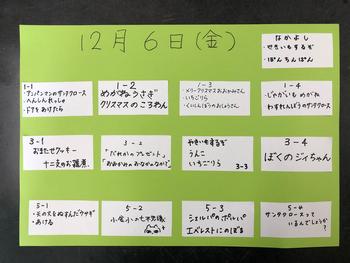 12月6日(金)
なかよし
・やきいもするぞ
・ぱんちんぱん
1-1
・アンパンマンのサンタクロース
・へんしんれっしゃ
・ドアをあけたら
1-2
めがねうさぎ
クリスマスのころわん
1-3
・メリークリスマスおおかみさん
・いちごりら
・くいしんぼうのおじょうさん
1-4
・じゃがいもめがね
わすれんぼうのサンタクロース
3-1
・おまたせクッキー
・十二支のお雑煮
3-2
・「だれかのプレゼント」
・「おおかみのおなかのなかで」
やきいもするぞ
うんこ
いちごりら
3-3
3-4
ぼくのジィちゃん
5-1
・天の火をぬすんだウサギ
・あける
5-2
・小金小の七不思議
5-3
・シェルパのポルパ
エベレストにのぼる
5-4
サンタクロースって
いるんでしょうか?